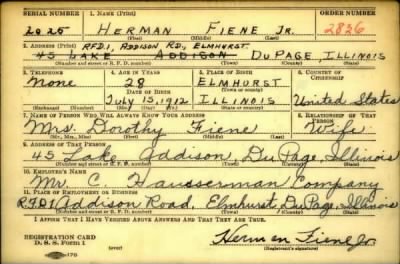 SERIAL NUMBER 1. NAME (Print) ORDER NUMBER
2025 HERMAN FIENE JR. 2826
(First) (Middle) (Last)
2. ADDRESS (Print) RFD.1, ADDISON RD, ELMHURST
45 LAKE ADDISON DU PAGE, ILLINOIS
(Number and street or R. F. D. number) (Town) (County) (State)
3. TELEPHONE 4. AGE IN YEARS 5. PLACE OF BIRTH 6. COUNTRY OF CITIZENSHIP
None 28 ELMHURST
DATE OF BIRTH (Town or county)
July 13, 1912 ILLINOIS United States
(Exchange) (Number) (Mo.) (Day) (Yr.) (State or country)
7. NAME OF PERSON WHO WILL ALWAYS KNOW YOUR ADDRESS 8. RELATIONSHIP OF THAT PERSON
Mrs. Dorothy Fiene Wife
(Mr., Mrs., Miss) (First) (Middle) (Last)
9. ADDRESS OF THAT PERSON
45 Lake Addison, Du Page, Illinois
(Number and street or R. F. D. number) (Town) (County) (State)
10. EMPLOYER'S NAME
Mr. C. Hausserman Company
11. PLACE OF EMPLOYMENT OR BUSINESS
RFD1 Addison Road, Elmhurst Du Page, Illinois
(Number and street or R. F. D. number) (Town) (County) (State)
I AFFIRM THAT I HAVE VERIFIED ABOVE ANSWERS AND THAT THEY ARE TRUE.
REGISTRATION CARD
D. S. S. Form 1 (over) Herman Fiene Jr.
(Registrant's signature)